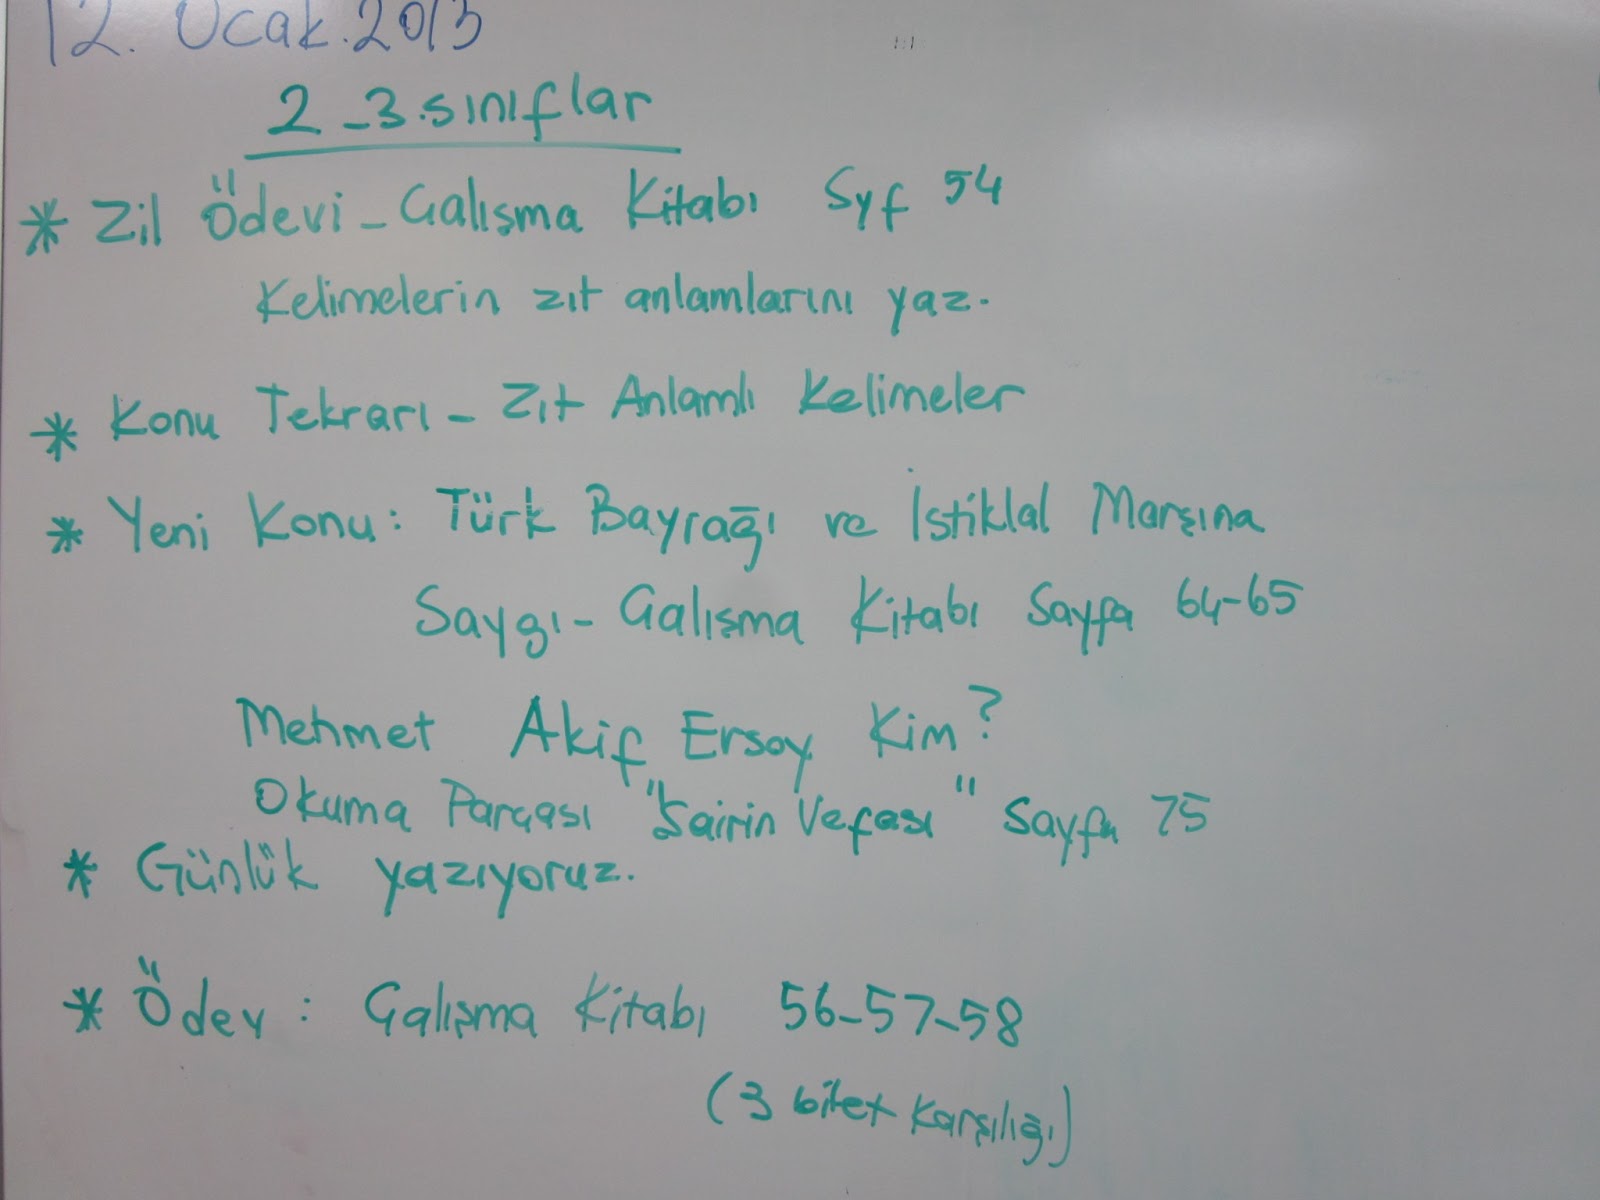 12. Ocak.2013
2-3.sınıflar
* Zil Ödevi - Çalışma Kitabı Syf 54
Kelimelerin zıt anlamlarını yaz.
* Konu Tekrarı - Zıt Anlamlı Kelimeler
* Yeni Konu: Türk Bayrağı ve İstiklal Marşına
Saygı - Çalışma Kitabı Sayfa 64-65
Mehmet Akif Ersoy Kim?
Okuma Parçası "Şairin Vefası" Sayfa 75
* Günlük yazıyoruz.
* Ödev: Çalışma Kitabı 56-57-58
(3 bilet karşılığı)